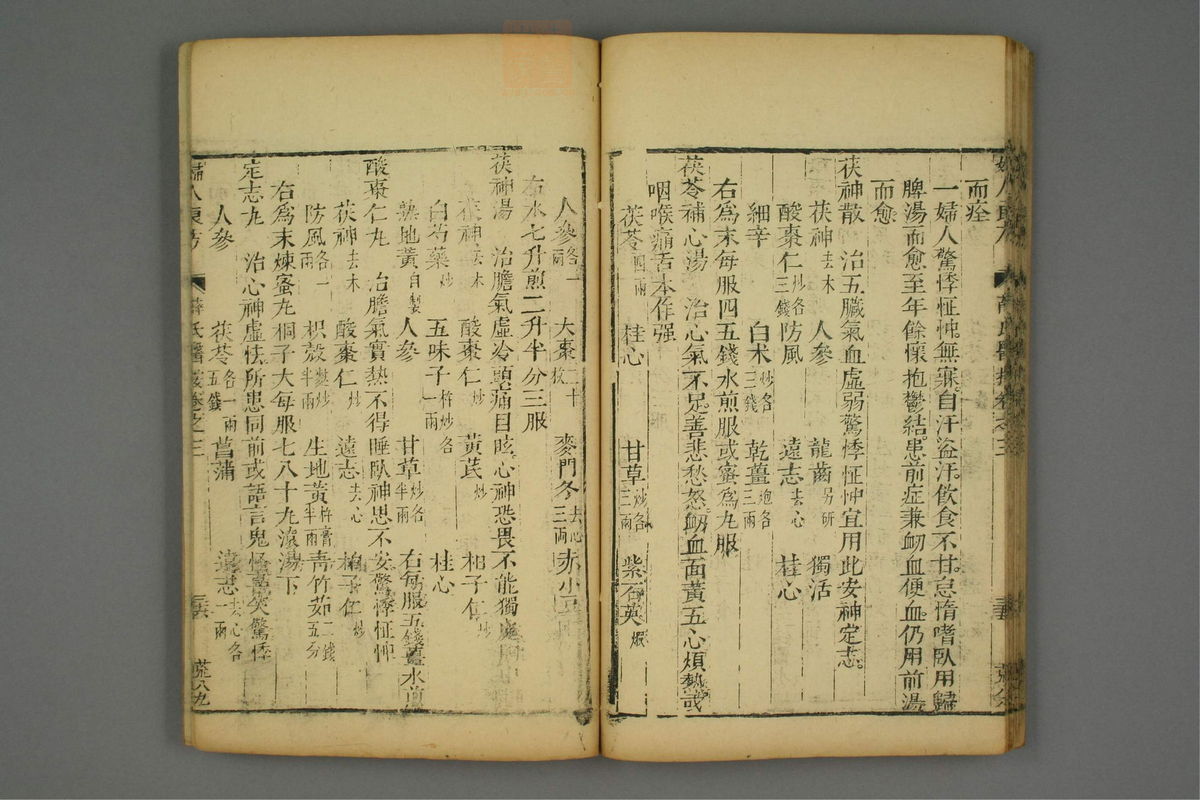 而痊
一婦人驚悸怔忡無寐自汗盜汗飲食不甘怠惰嗜臥用歸
脾湯而愈至年餘懷抱鬱結患前症兼衂血便血仍用前湯
而愈
茯神散 治五臟氣血虛弱驚悸怔忡宜用此安神定志
茯神去木 人參 龍齒另研 獨活
酸棗仁炒各三錢 防風 遠志去心 桂心
細辛 白朮炒各三錢 乾薑炮各三兩
右爲末每服四五錢水煎服或蜜爲丸服
茯苓補心湯 治心氣不足善悲愁怒衂血面黃五心煩熱或
咽喉痛舌本作强
茯苓四兩 桂心 甘草炒各三兩 紫石英煆
人參各一兩 大棗二十枚 麥門冬去心三兩 赤小豆
右水七升煎二升半分三服
茯神湯 治膽氣虛冷頭痛目眩心神恐畏不能獨處
茯神去木 酸棗仁炒 黃芪炒 柏子仁炒
白芍藥炒 五味子杵炒各一兩 桂心
熟地黃自製 人參 甘草炒各半兩 右每服五錢薑水煎
酸棗仁丸 治膽氣實熱不得睡臥神思不安驚悸怔忡
茯神去木 酸棗仁炒 遠志去心 柏子仁炒
防風各一兩 枳殼麩炒半兩 生地黃杵膏半兩 靑竹茹二錢五分
右爲末煉蜜丸桐子大每服七八十丸滚湯下
定志丸 治心神虛怯所患同前或語言鬼怪喜笑驚悸
人參 茯苓各一兩五錢 菖蒲 遠志去心各一兩
婦人良方 薛氏醫按卷之三 荒八九